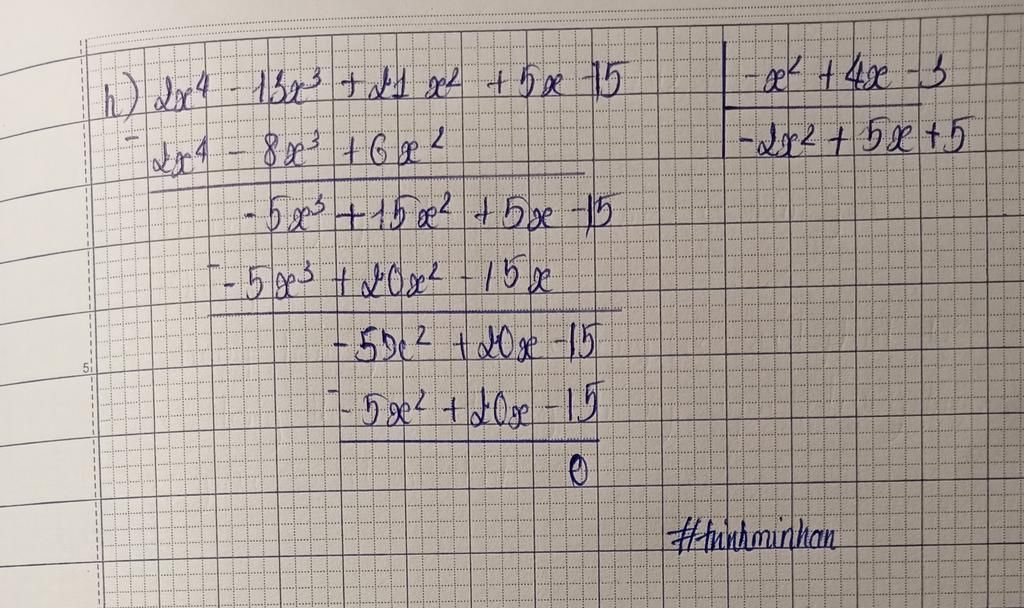 h) 2x⁴ - 13x³ + 21x² + 5x - 15 | -x² + 4x - 3
- 2x⁴ - 8x³ + 6x² | -2x² + 5x + 5
-5x³ + 15x² + 5x - 15
- -5x³ + 20x² - 15x
-5x² + 20x - 15
- -5x² + 20x - 15
0
5
#trinhminhan